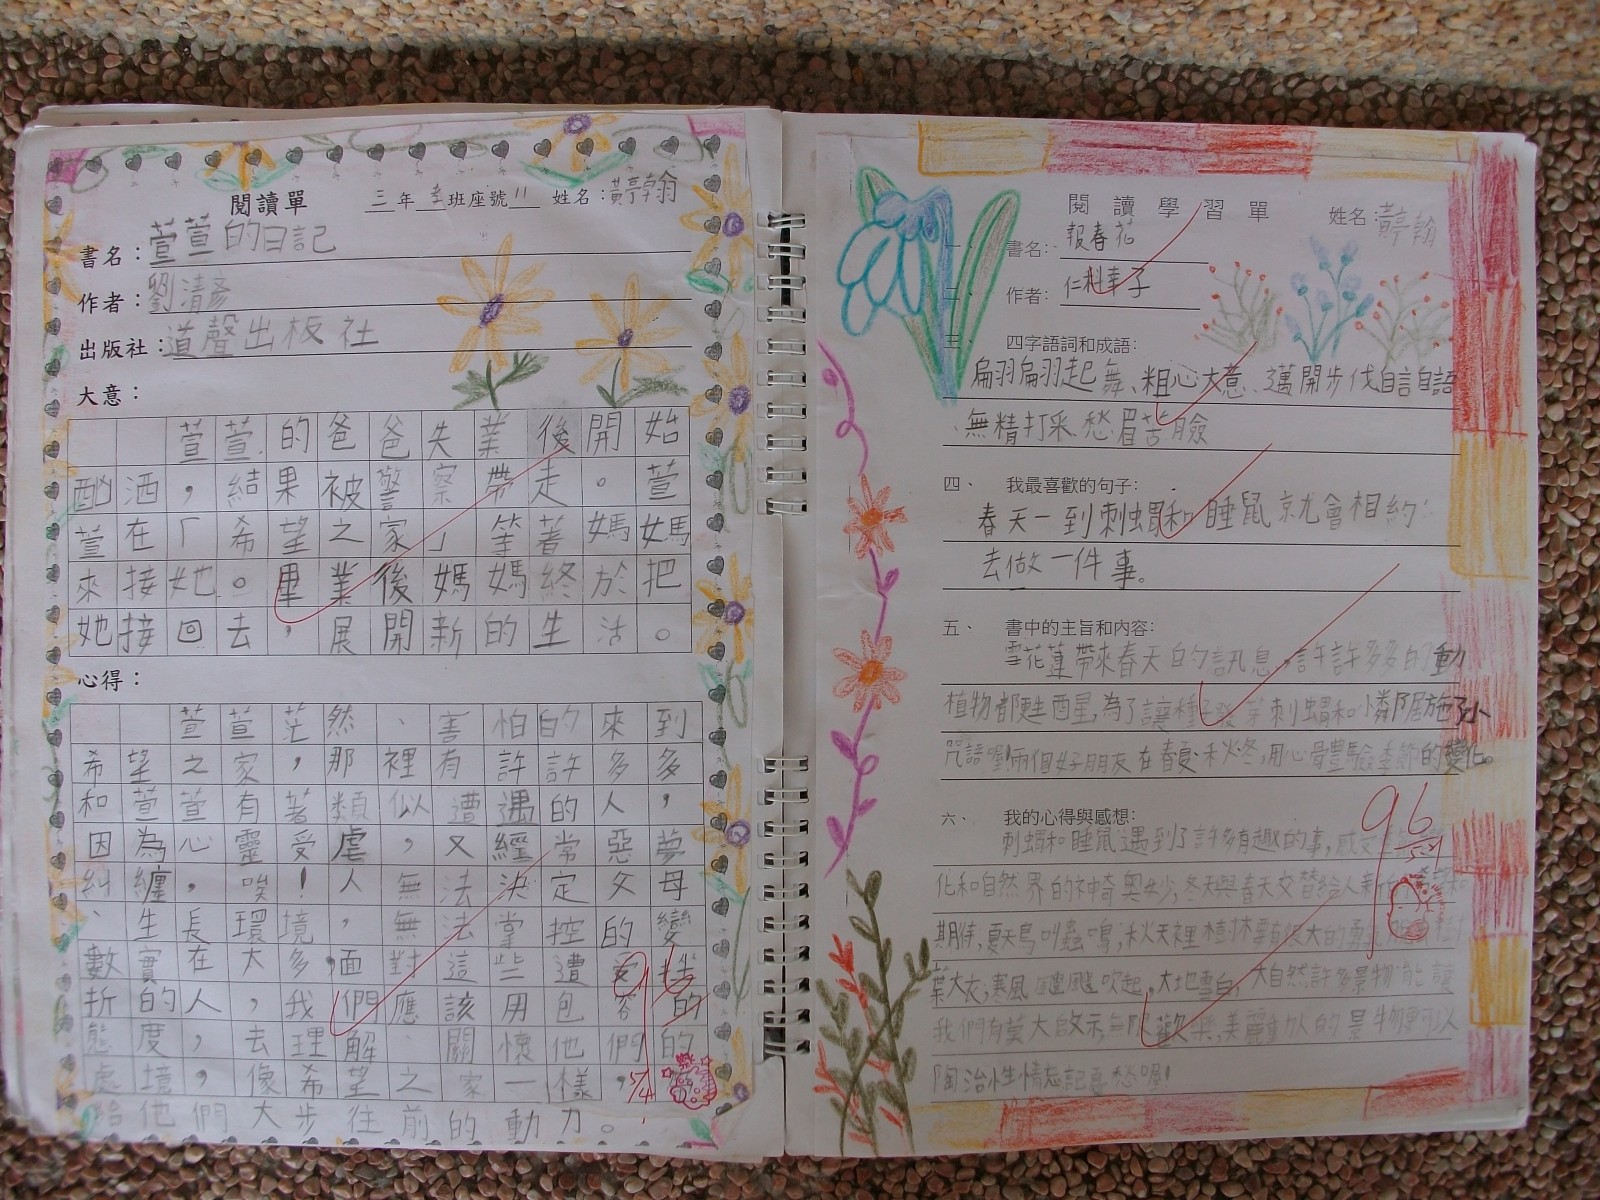 閱讀單
三年孝班座號11 姓名:黃亭翰
書名:萱萱的日記
作者:劉清彥
出版社:道聲出板社
大意:
萱萱的爸爸失業後開始
酗洒,結果被警察帶走。萱
萱在「希望之家」等著媽媽
來接她。畢業後媽媽終於把
她接回去,展開新的生活。
心得:
萱萱茫然、害怕的來到
希望之家,那裡有許許多多
和萱萱有著類似遭遇的人,
因為心靈受虐,又經常惡夢
糾纏,唉!人無法決定父母
、生長環境,無法掌控的變
數實在太多,面對這些遭受挫
折的人,我們應該用包容的
態度,去理解、關懷他們的
處境,像希望之家一樣,
給他們大步往前的動力。
5/4
閱讀學習單 姓名:黃亭翰
一、書名:報春花
二、作者:仁科幸子
三、四字語詞和成語:
翩翩起舞、粗心大意、邁開步伐自言自語
、無精打采、愁眉苦臉
四、我最喜歡的句子:
春天一到刺蝟和睡鼠就會相約
去做一件事。
五、書中的主旨和內容:
雪花蓮帶來春天的訊息,許許多多的動
植物都甦醒,為了讓種子發芽刺蝟和小鄰居施了小
咒語喔!兩個好朋友在春夏秋冬,用心體驗季節的變化。
六、我的心得與感想:
刺蝟和睡鼠遇到了許多有趣的事,感受
化和自然界的神奇奧妙,冬天與春天交替給人新的希望和
期待,夏天鳥叫蟲鳴,秋天裡樹林要有很大的勇氣
葉大衣,寒風颼颼吹起,大地雪白,大自然許多景物能讓
我們有莫大啟示,無限歡樂,美麗動人的景物可以
陶冶性情忘記憂愁喔!
96